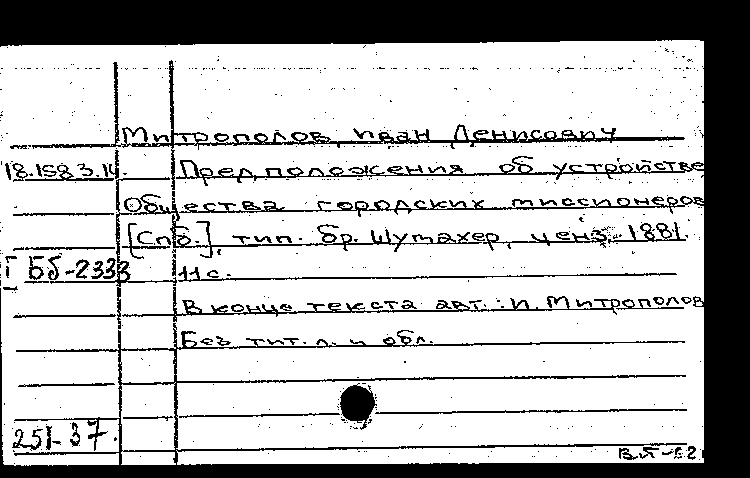 Митрополов, Иван Денисович
18.158.3.16. Предположения об устройстве
Общества городских миссионеров
[Спб.], тип. бр. Шумахер, ценз. 1881.
I Бб-2333 11 с.
В конце текста авт.: И. Митрополов
Без тит. л. и обл.
251-37.